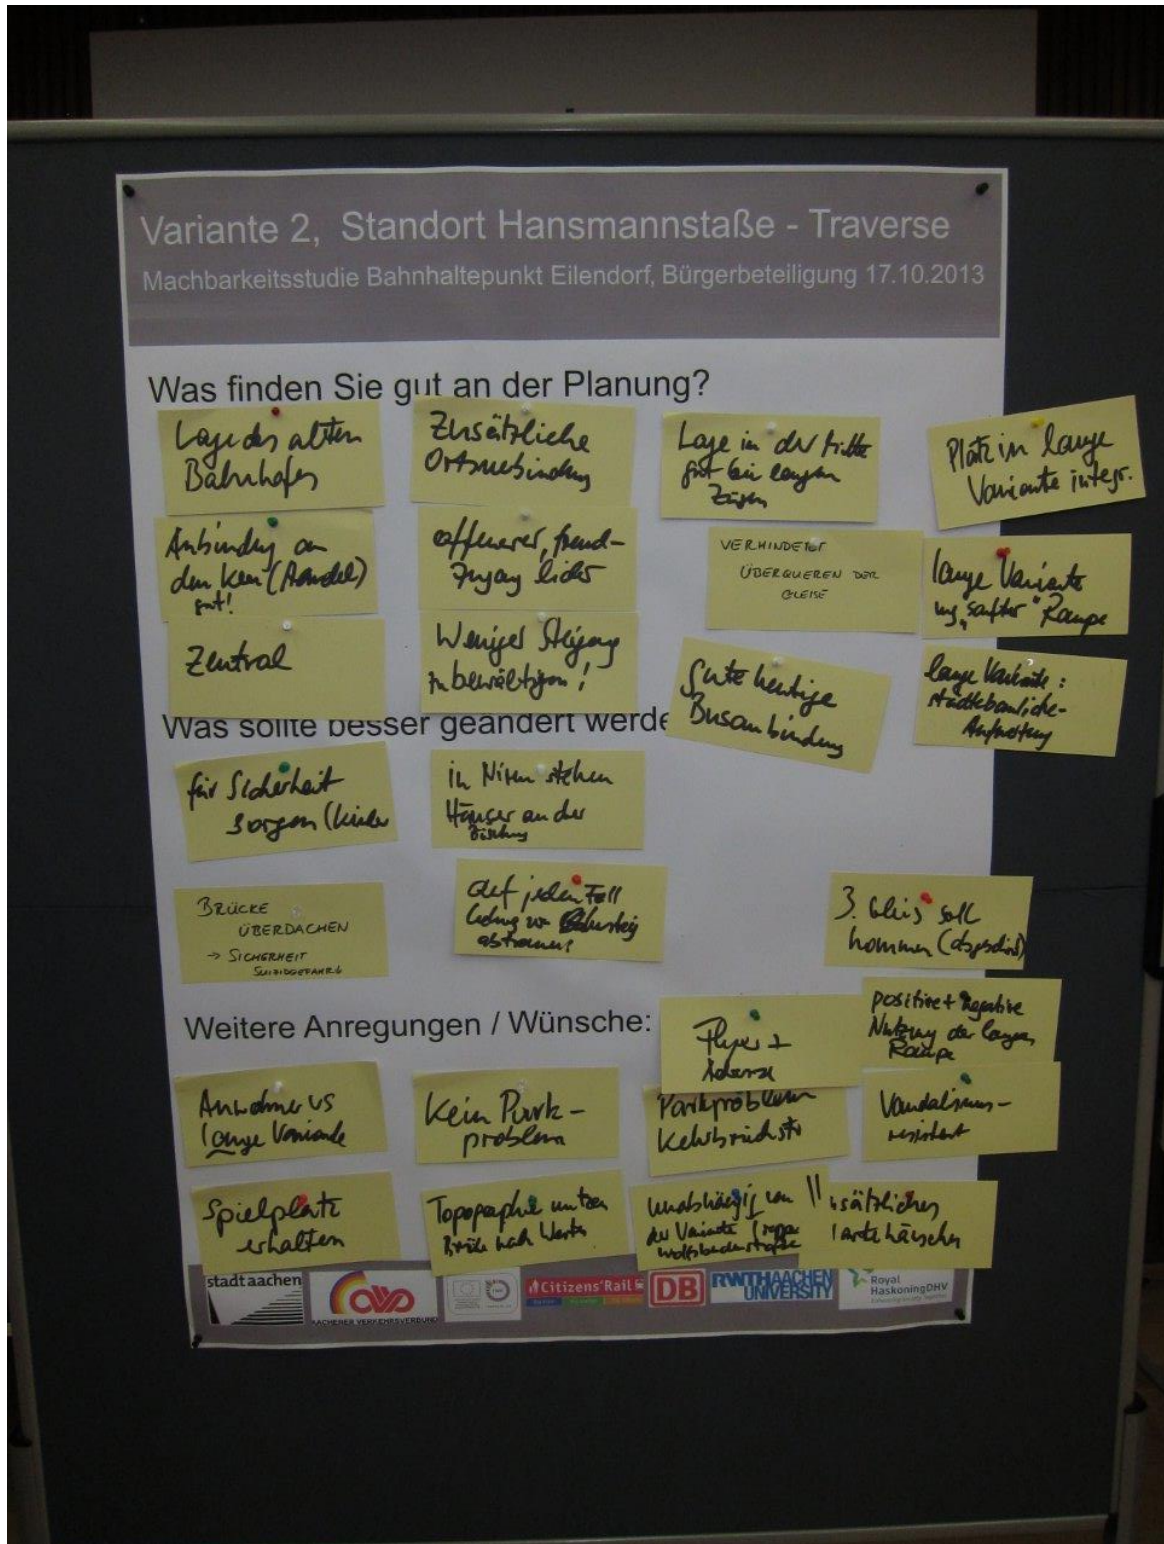 Variante 2, Standort Hansmannstaße - Traverse
Machbarkeitsstudie Bahnhaltepunkt Eilendorf, Bürgerbeteiligung 17.10.2013
Was finden Sie gut an der Planung?
Lage des alten
Bahnhofes
Zusätzliche
Ortsverbindung
Lage in der Mitte
gut bei langen
Zügen
Platz in lange
Variante integr.
Anbindung an
den Kern (Handel)
gut!
offenerer, freund-
Zugang
VERHINDERT
ÜBERQUEREN DER
GLEISE
lange Variante
"sanfter" Rampe
Zentral
Weniger Steigung
zu bewältigen!
Gute heutige
Busanbindung
lange Variante:
städtebauliche-
Aufwertung
Was sollte besser geändert werde
für Sicherheit
sorgen (Kinder
in Nirm stehen
Häuser an der
BRÜCKE
ÜBERDACHEN
→ SICHERHEIT
SUIZIDGEFAHR
auf jeden Fall
3. Gleis soll
kommen
Weitere Anregungen / Wünsche:
Flyer +
positive + negative
Nutzung der langen
Rampe
Anwohner vs
lange Variante
Kein Park-
problem
Parkproblem
Kehrbruchstr
Vandalismus-
resistent
Spielplatz
erhalten
Topographie nutzen
Brücke nach
unabhängig von
der Variante
sätzliches
artehäuschen
stadt aachen
AVV
AACHENER VERKEHRSVERBUND
Citizens'Rail
DB
RWTHAACHEN
UNIVERSITY
Royal
HaskoningDHV